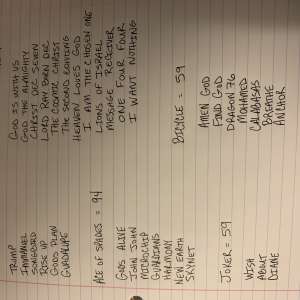 TRUMP
IMMANUEL
SONGBIRD
RISE UP
GODS PLAN
GUADALUPE
ACE OF SPADES = 94
GODS ALIVE
JOHN JOHN
MICROCHIP
GUARDIANS
HARMONY
NEW EARTH
SKYNET
JOKER = 59
WISH
ABOUT
DIANE
GOD IS WITH US
GOD THE ALMIGHTY
CHRIST DEC SEVEN
LORD RAY BORN DEC
THE COSMIC CHRIST
THE SECOND COMING
HEAVEN LOVES GOD
I AM THE CHOSEN ONE
LIONS OF ISRAEL
MESSAGE RECEIVER
ONE FOUR FOUR
I WANT NOTHING
BICYCLE = 59
AMEN GOD
FIND GOD
DRAGON 76
MOHAMED
CALABASAS
BREATHE
ANCHOR